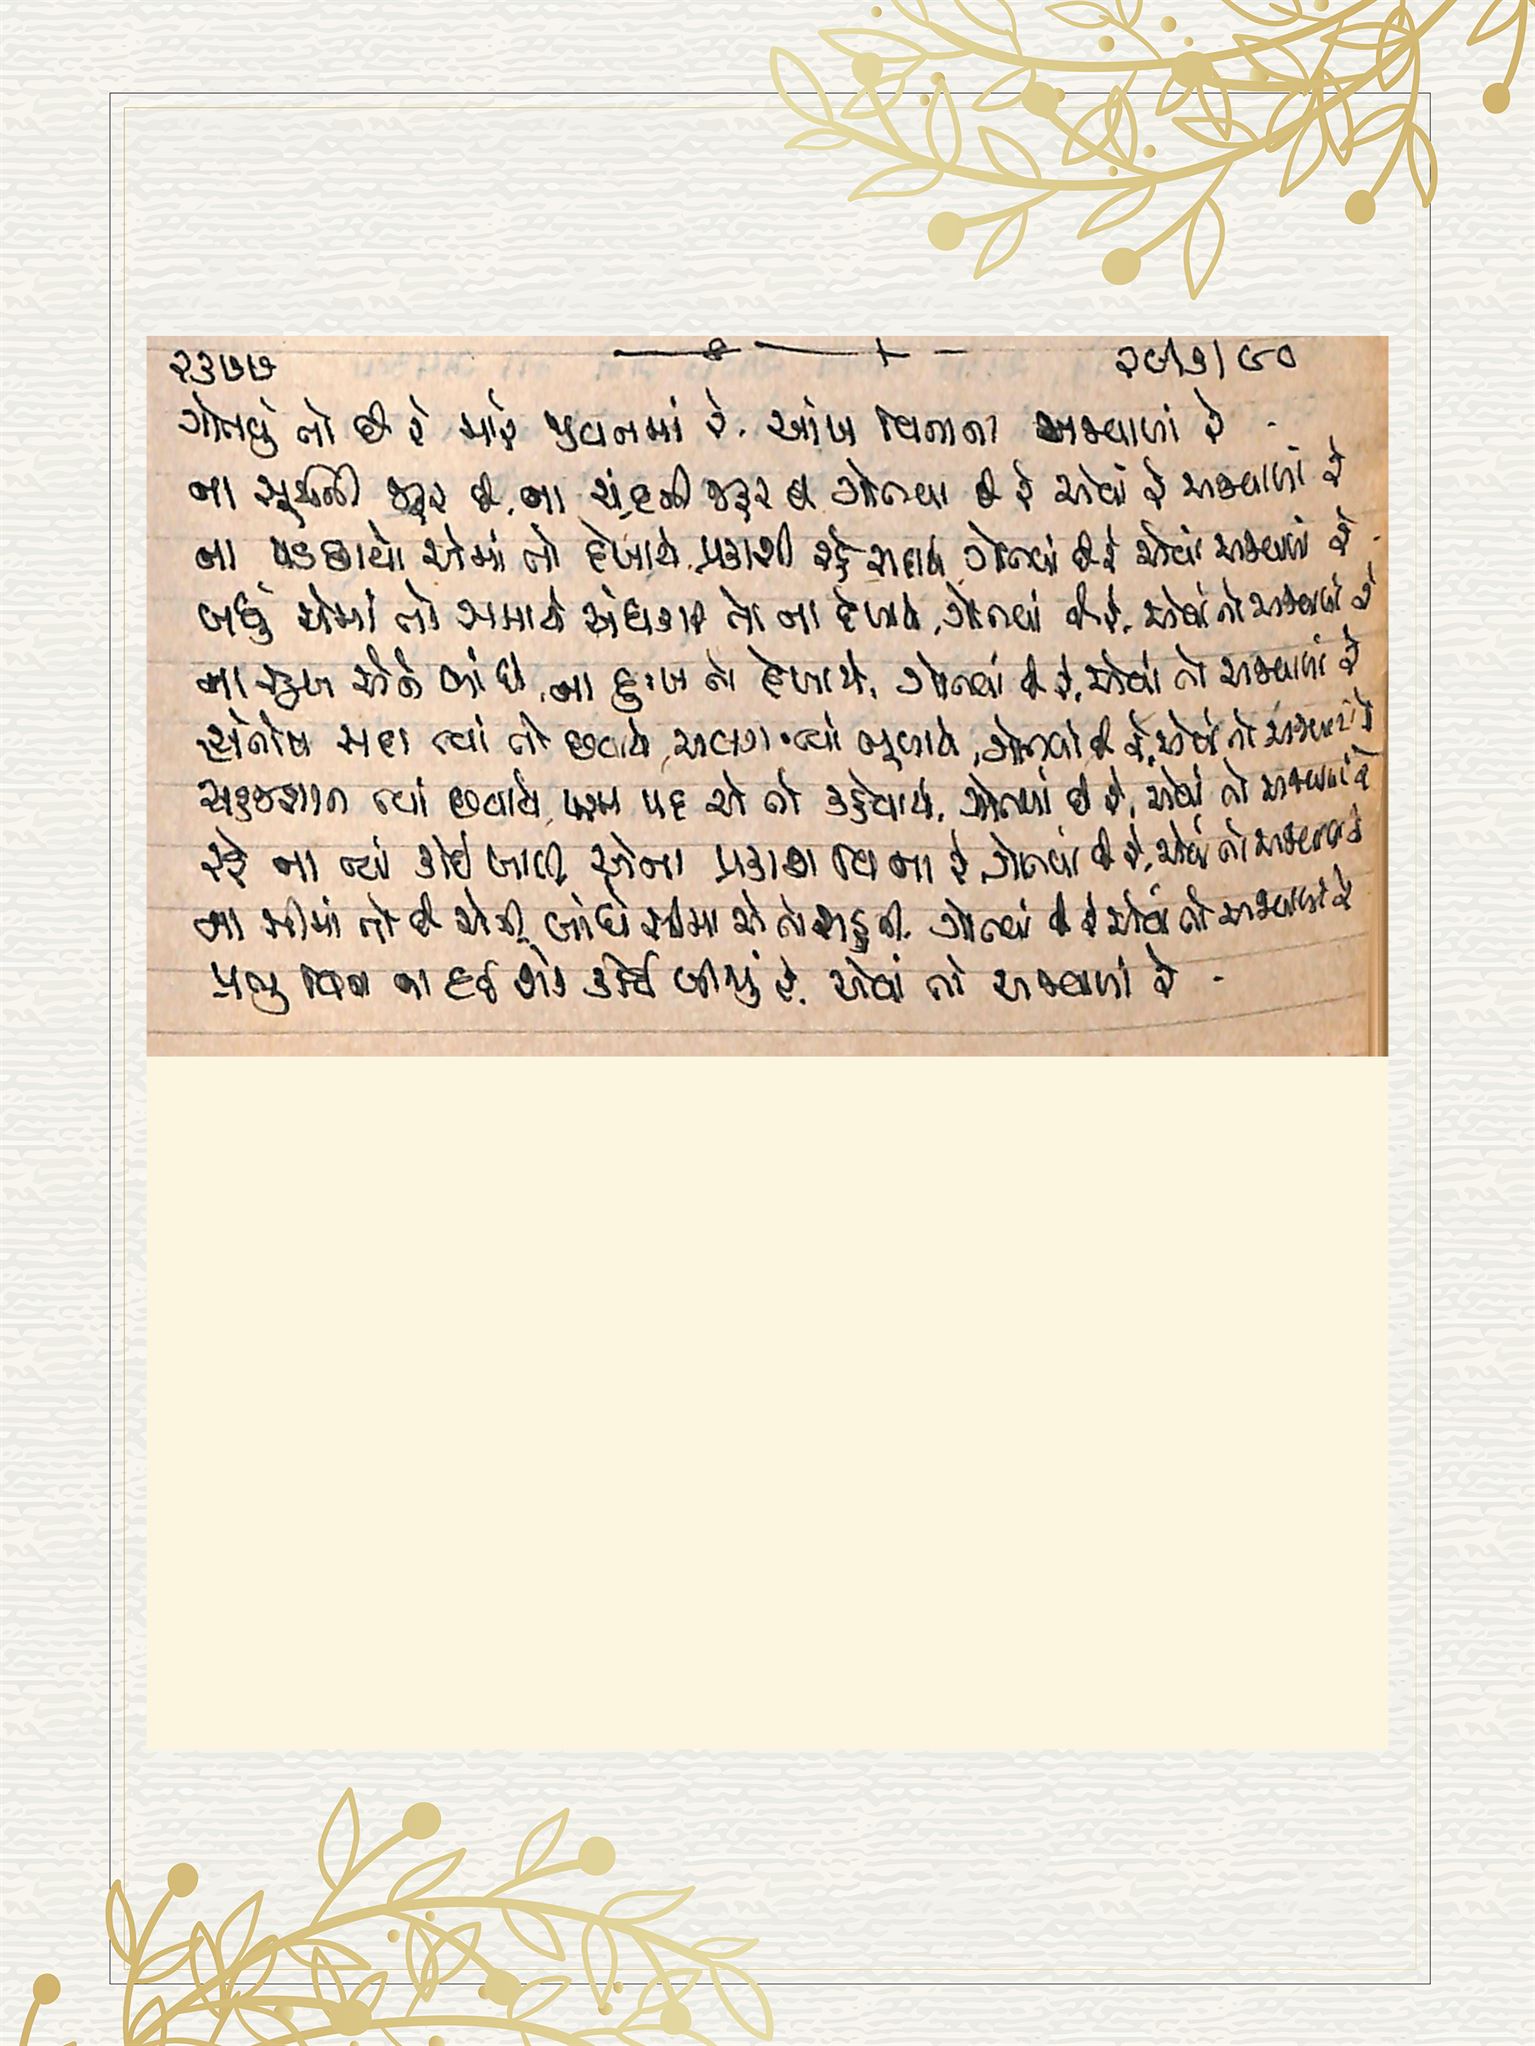 ૨૩૭૭ ૨૯/૩/૯૦
ગોતવું તો છે રે મારે જીવનમાં રે, આંખ વિનાના અજવાળાં રે
ના સૂર્યની જરૂર છે, ના ચંદ્રની જરૂર છે ગોતવા છે રે એવાં રે અજવાળાં રે
ના પડછાયો એમાં તો દેખાયે, પ્રકાશી રહે સદાય, ગોતવાં છે રે એવાં અજવાળાં રે
બધું એમાં તો સમાયે અંધકાર તો ના દેખાયે, ગોતવાં છે રે, એવાં તો અજવાળાં રે
ના સુખ એને બાંધે, ના દુઃખ તો દેખાયે, ગોતવાં છે રે, એવાં તો અજવાળાં રે
સંતોષ સદા ત્યાં તો છવાયે, અલગતા ત્યાં ભૂલાયે, ગોતવાં છે રે, એવાં તો અજવાળાં રે
સહજજ્ઞાન ત્યાં છવાયે, પરમ પદ એ તો કહેવાયે, ગોતવાં છે રે, એવાં તો અજવાળાં રે
રહે ના ત્યાં કોઈ ખાલી, એના પ્રકાશ વિના રે, ગોતવાં છે રે, એવાં તો અજવાળાં રે
ના સીમા તો છે એની, બાંધે સીમા એ તો સહુની, ગોતવાં છે રે એવાં તો અજવાળાં રે
પ્રભુ વિના ના દઈ શકે કોઈ બીજું રે, એવાં તો અજવાળાં રે